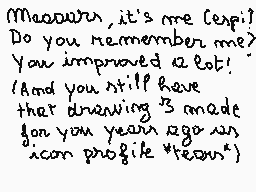 Meowurs, it's me Cespi!
Do you remember me?
You improved a lot!
(And you still have
that drawing I made
for you years ago as
icon profile *tears*)